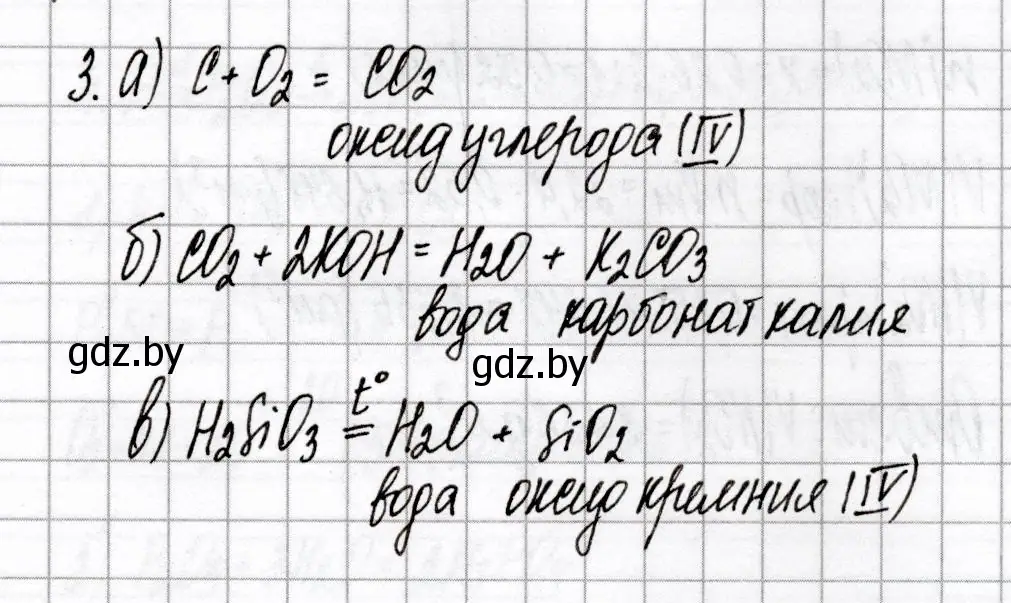 3. а) C + O₂ = CO₂
оксид углерода (IV)
б) CO₂ + 2KOH = H₂O + K₂CO₃
вода карбонат калия
gdz.by gdz.by
t°
в) H₂SiO₃ = H₂O + SiO₂
вода оксид кремния (IV)